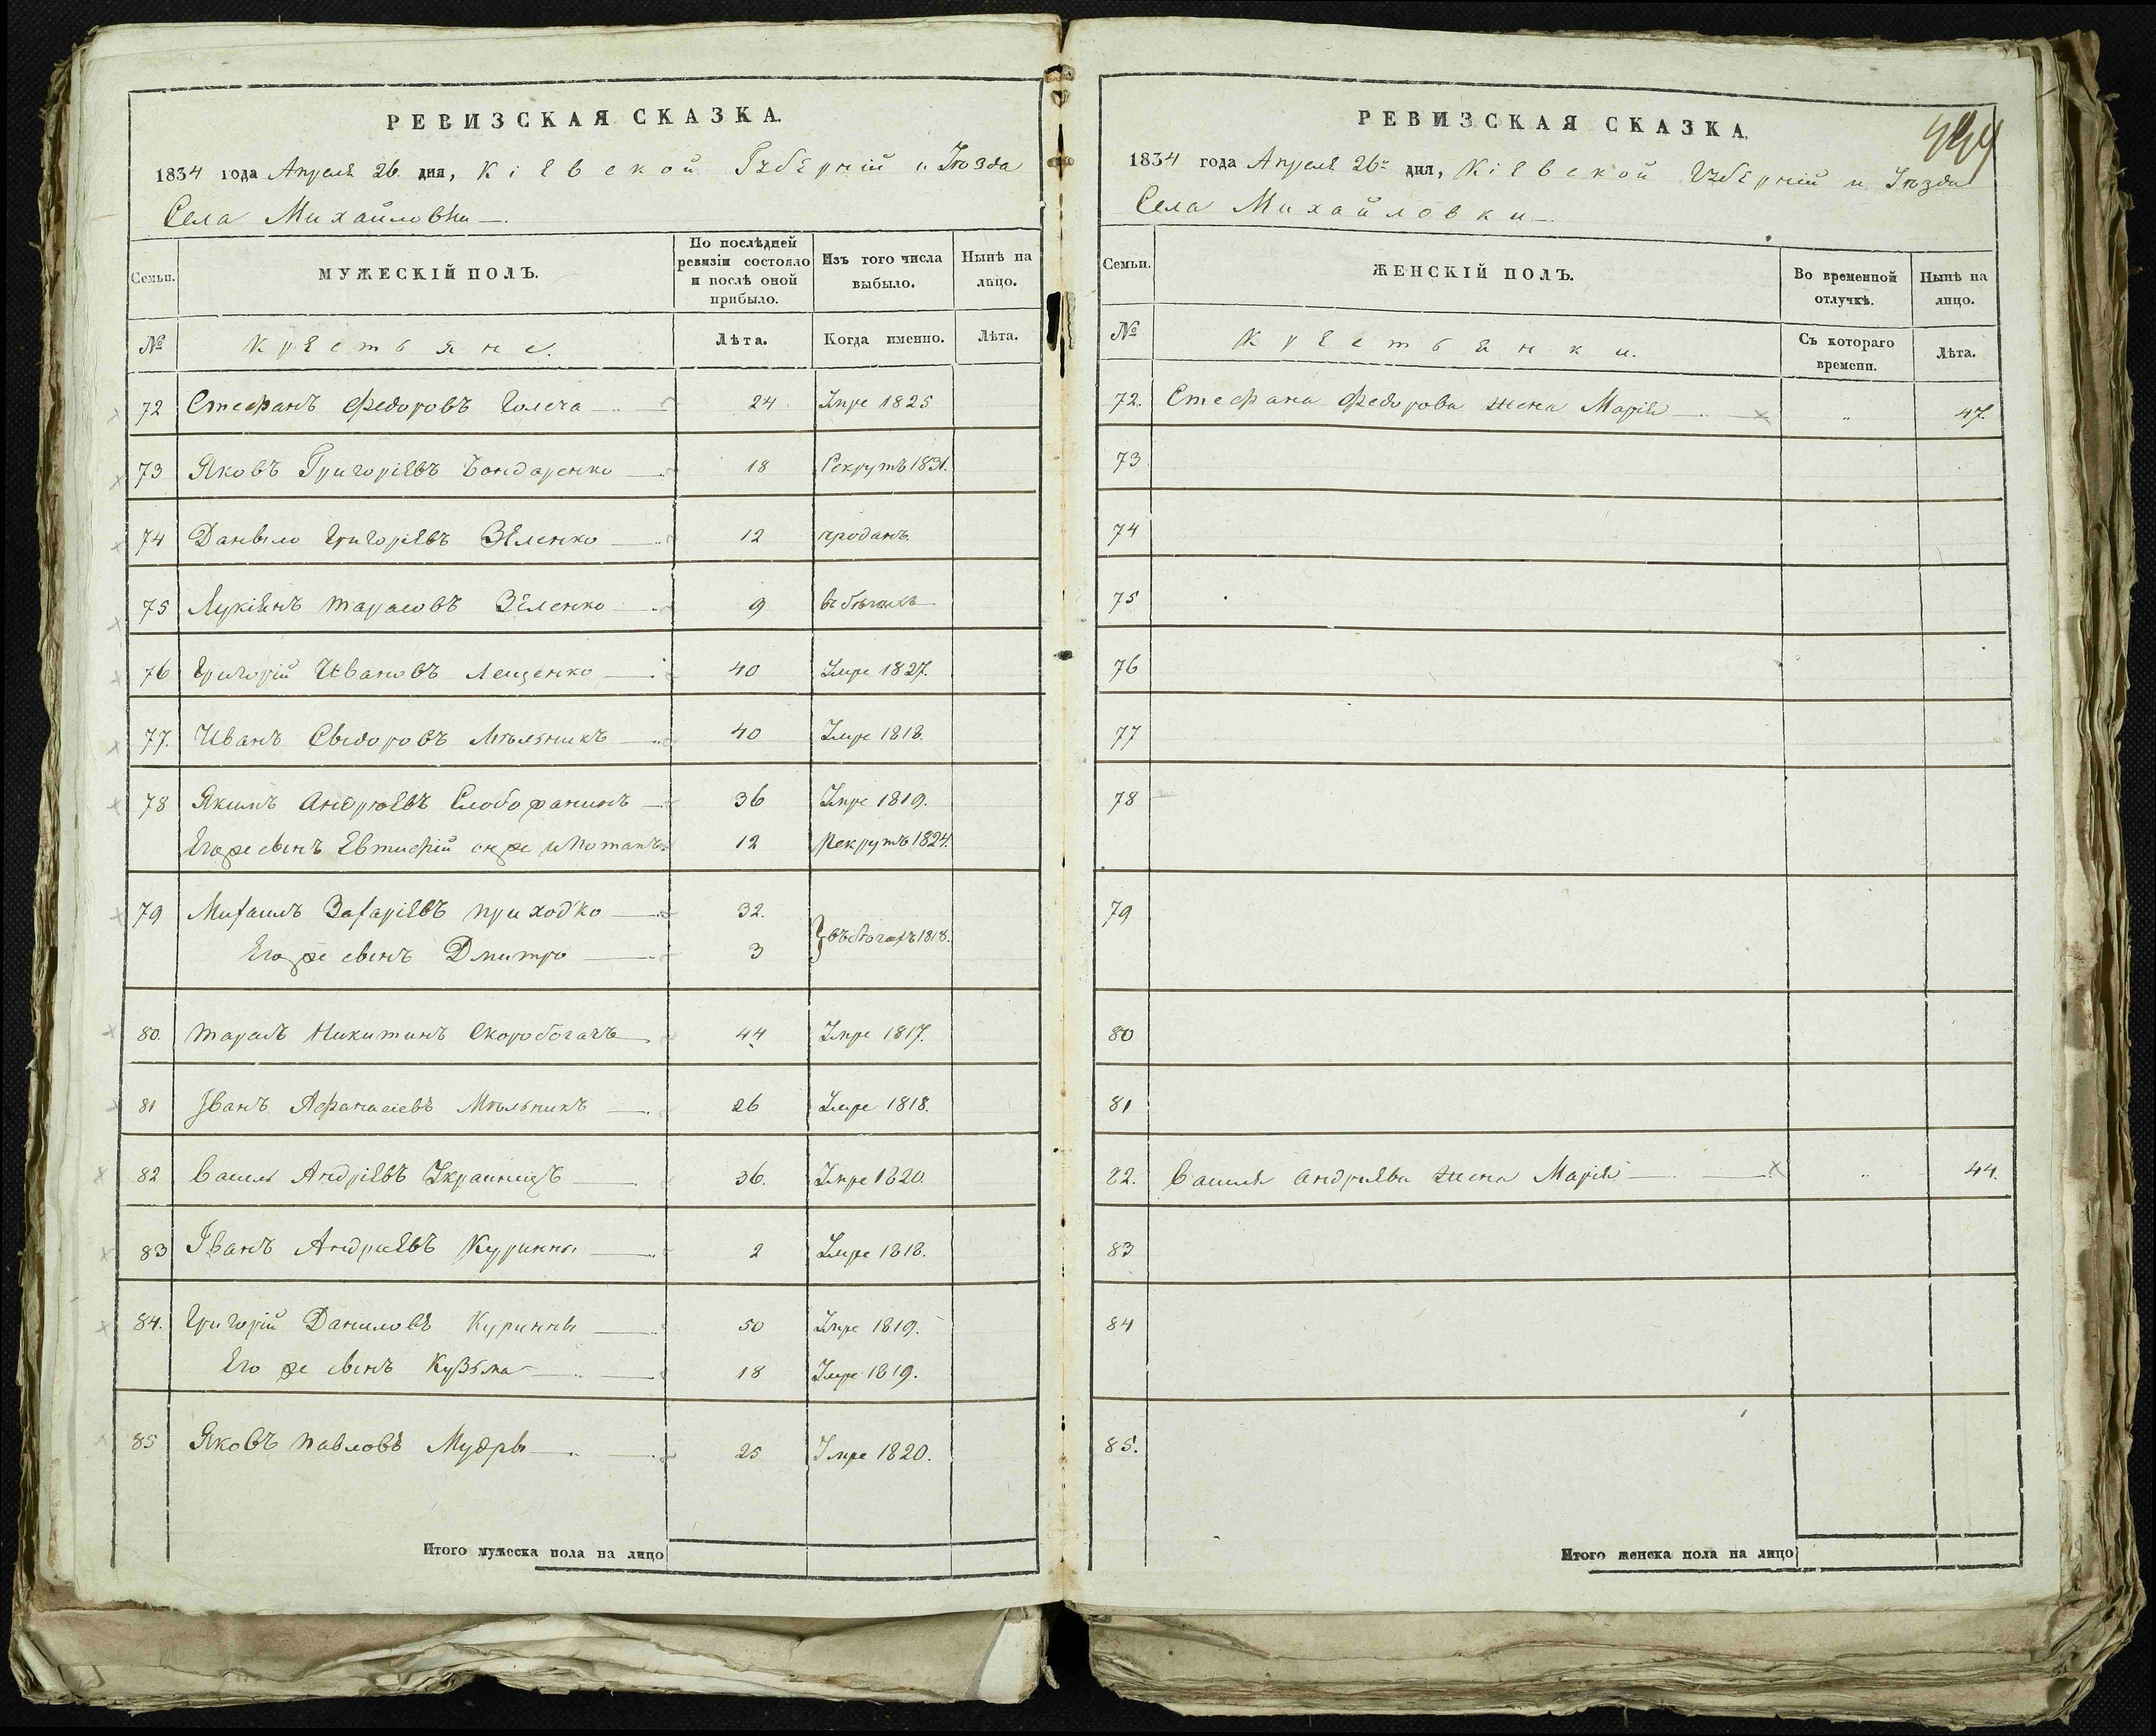 РЕВИЗСКАЯ СКАЗКА.
1834 года Апреля 26. дня, Кіевской Губерніи и Уѣзда
Села Михайловки
Семьи. МУЖЕСКІЙ ПОЛЪ. По послѣдней ревизіи состояло и послѣ оной прибыло. Изъ того числа выбыло. Нынѣ на лицо.
№ Крестьяне. Лѣта. Когда именно. Лѣта.
72 Стефанъ Федоровъ 24 Умре 1825
73 Яковъ Григоріевъ Бондаренко 18 Рекрутъ 1831.
74 Даныло Григоріевъ Зеленко 12 проданъ
75 Лукіянъ Тарасовъ Зеленко 9 въ бѣгахъ
76 Григорій Ивановъ Лещенко 40 Умре 1827.
77. Иванъ Сыдоровъ Мѣльникъ 40 Умре 1818.
78 Якимъ Андрюевъ 36 Умре 1819.
Егоже сынъ Евтифій онже и Потапъ 12 Рекрутъ 1824.
79 Михаилъ Захаріевъ Приходко 32.
Егоже сынъ Дмитро 3 въ бѣгахъ 1818.
80. Тарасъ Никитинъ Скоробогачъ 44 Умре 1817.
81 Іванъ Афанасіевъ Мѣльникъ 26 Умре 1818.
82 Василь Андріевъ Украинецъ 36. Умре 1820.
83 Іванъ Андриевъ Куринны 2 Умре 1818.
84. Григорій Даниловъ Куринны 50 Умре 1819.
Его же сынъ Кузьма 18 Умре 1819.
85 Яковъ Павловъ Мудры 25 Умре 1820.
Итого мужеска пола на лицо
РЕВИЗСКАЯ СКАЗКА.
1834 года Апреля 26 дня, Кіевской Губерніи и Уѣзда
Села Михайловки
Семьи. ЖЕНСКІЙ ПОЛЪ. Во временной отлучкѣ. Нынѣ на лицо.
№ Крестьянки. Съ котораго времени. Лѣта.
72. Стефана Федорова жена Марія " 47.
73
74
75
76
77
78
79
80
81
82. Василя Андриева жена Марія " 44.
83
84
85.
Итого женска пола на лицо